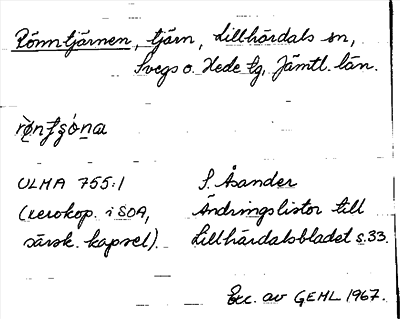 Rönntjärnen, tjärn, Lillhärdals sn,
Svegs o. Hede tg, Jämtl. län.
ULMA 755:1 S. Åsander
(xerokop. i SOA, Ändringslistor till
särsk. kapsel). Lillhärdalsbladet s. 33.
Exc. av GEHL 1967.